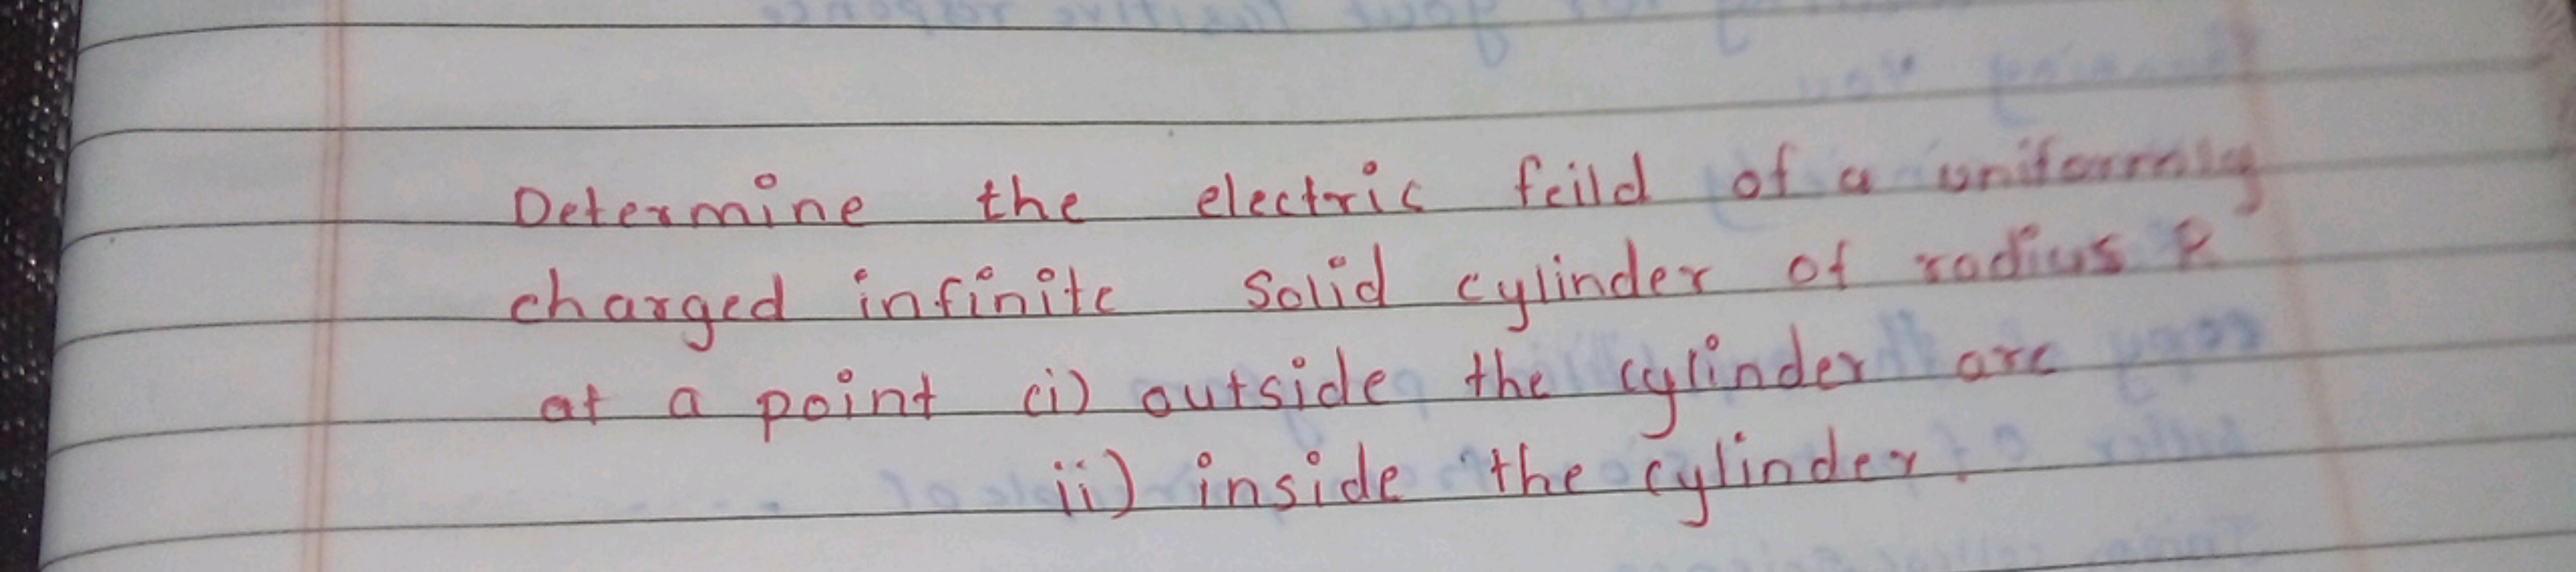 Determine the electric feild of a uniformly
charged infinite solid cylinder of radius R
at a point (i) outside the cylinder are
ii) inside the cylinder.